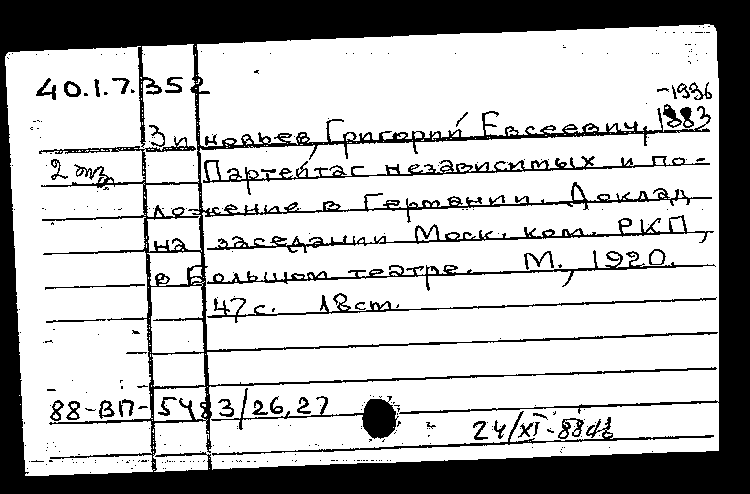 40.1.7.352
-1936
Зиновьев, Григорий Евсеевич, 1883
2 экз. Партейтаг независимых и по-
ложение в Германии. Доклад
на заседании Моск. ком. РКП,
в Большом театре. М., 1920.
47 с. 18 см.
88-ВП-5483/26,27
24/XI-88